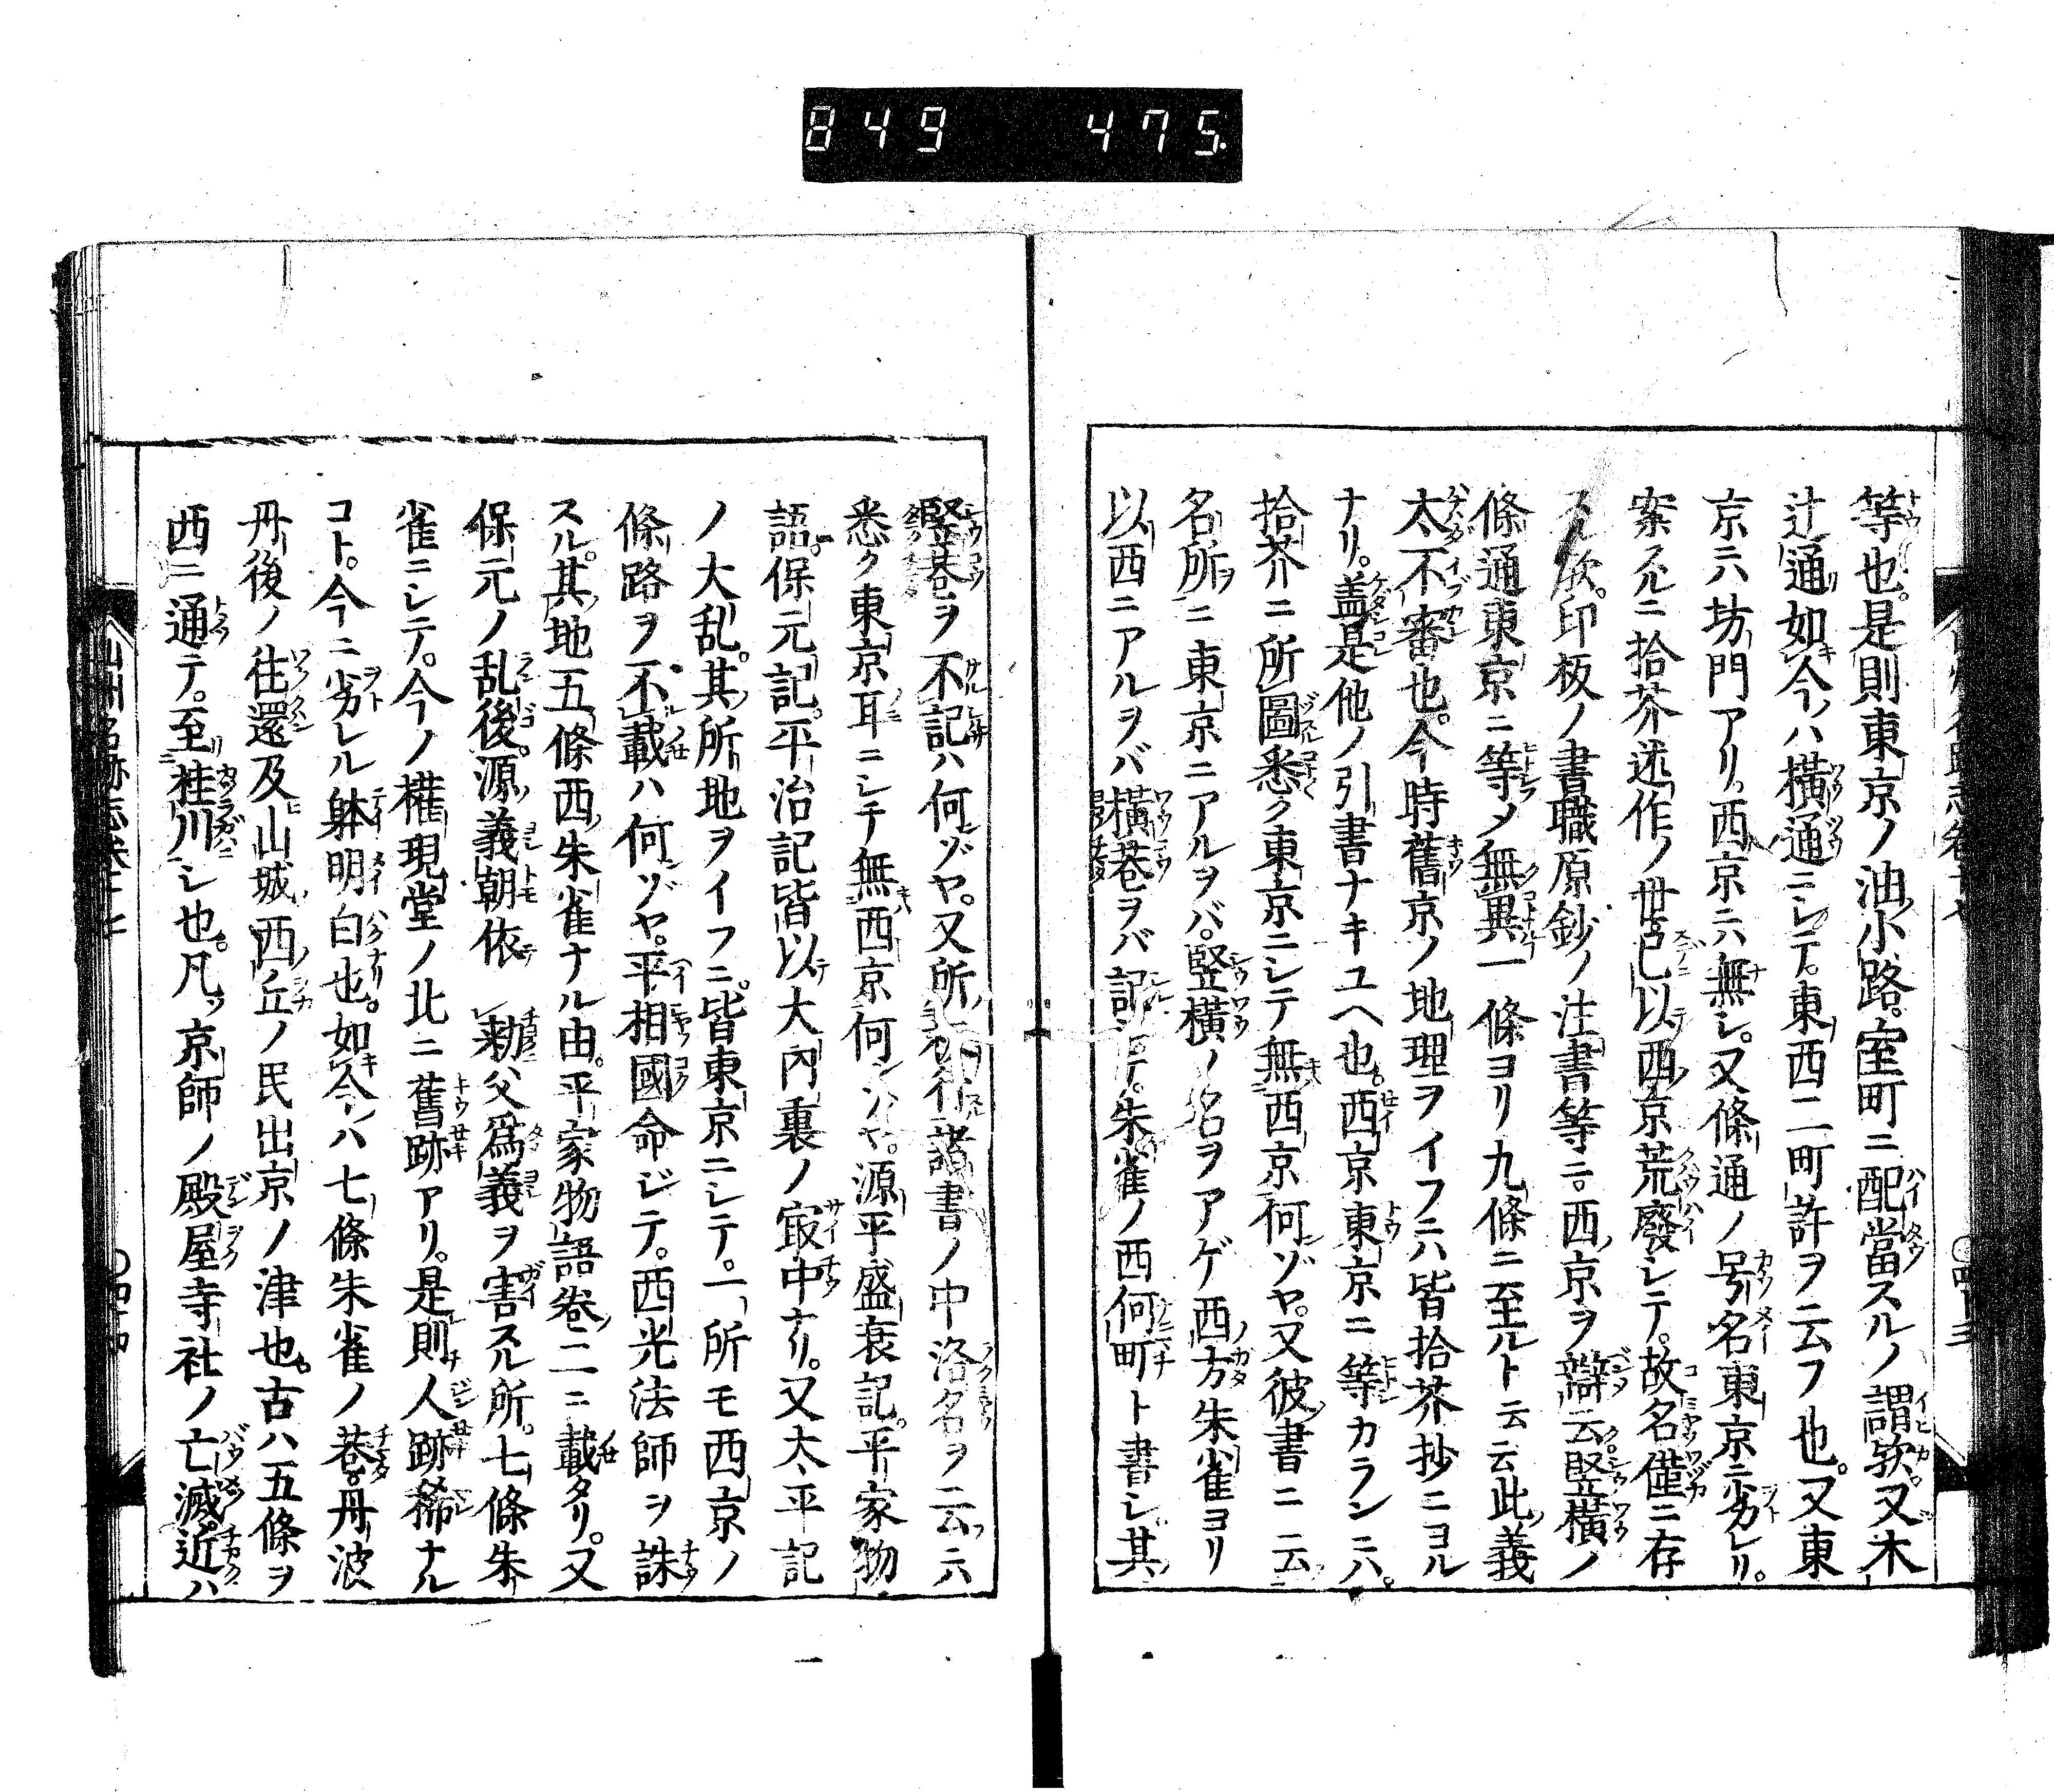 849 475
等也。是則東京ノ油小路。室町ニ配當スルノ謂欤。又木
辻通如今ハ橫通ニシテ。東西二町許ヲ云フ也。又東
京ニハ坊門アリ。西京ニハ無シ。又條通ノ号名東京ニ劣レリ。
案スルニ拾芥述作ノ世已以西京荒廢シテ。故名僅ニ存
スル欤。印板ノ書職原鈔ノ注書等ニ。西京ヲ辯云竪橫ノ
條通東京ニ等メ無異一條ヨリ九條ニ至ルト云云此義
太不審也。今時舊京ノ地理ヲイフニハ皆拾芥抄ニヨル
ナリ。盖是他ノ引書ナキユヘ也。西京東京ニ等カランニハ。
拾芥ニ所圖悉ク東京ニシテ無西京何ゾヤ。又彼書ニ云
名所ニ東京ニアルヲバ。竪橫ノ名ヲアゲ西方朱雀ヨリ
以西ニアルヲバ橫巷ヲバ記シテ。朱雀ノ西何町ト書シ其
竪巷ヲ不記ハ何ゾヤ。又所諸書ノ中洛名ヲ云ハ
悉ク東京耳ニシテ無西京何ゾヤ。源平盛衰記。平家物
語。保元記。平治記皆以大內裏ノ㝡中ナリ。又太平記
ノ大乱。其所地ヲイフニ。皆東京ニシテ。一所モ西京ノ
條路ヲ不載ハ何ゾヤ。平相國命ジテ。西光法師ヲ誅
スル。其地五條西朱雀ナル由。平家物語卷二ニ載タリ。又
保元ノ乱後。源義朝依 勅父爲義ヲ害スル所。七條朱
雀ニシテ。今ノ權現堂ノ北ニ舊跡アリ。是則人跡稀ナル
コト。今ニ劣レル躰明白也。如今ハ七條朱雀ノ巷。丹波
丹後ノ往還及山城西丘ノ民出京ノ津也。古ハ五條ヲ
西ニ通テ。至桂川シ也。凡ッ京師ノ殿屋寺社ノ亡滅。近ハ
山州名跡志卷十七